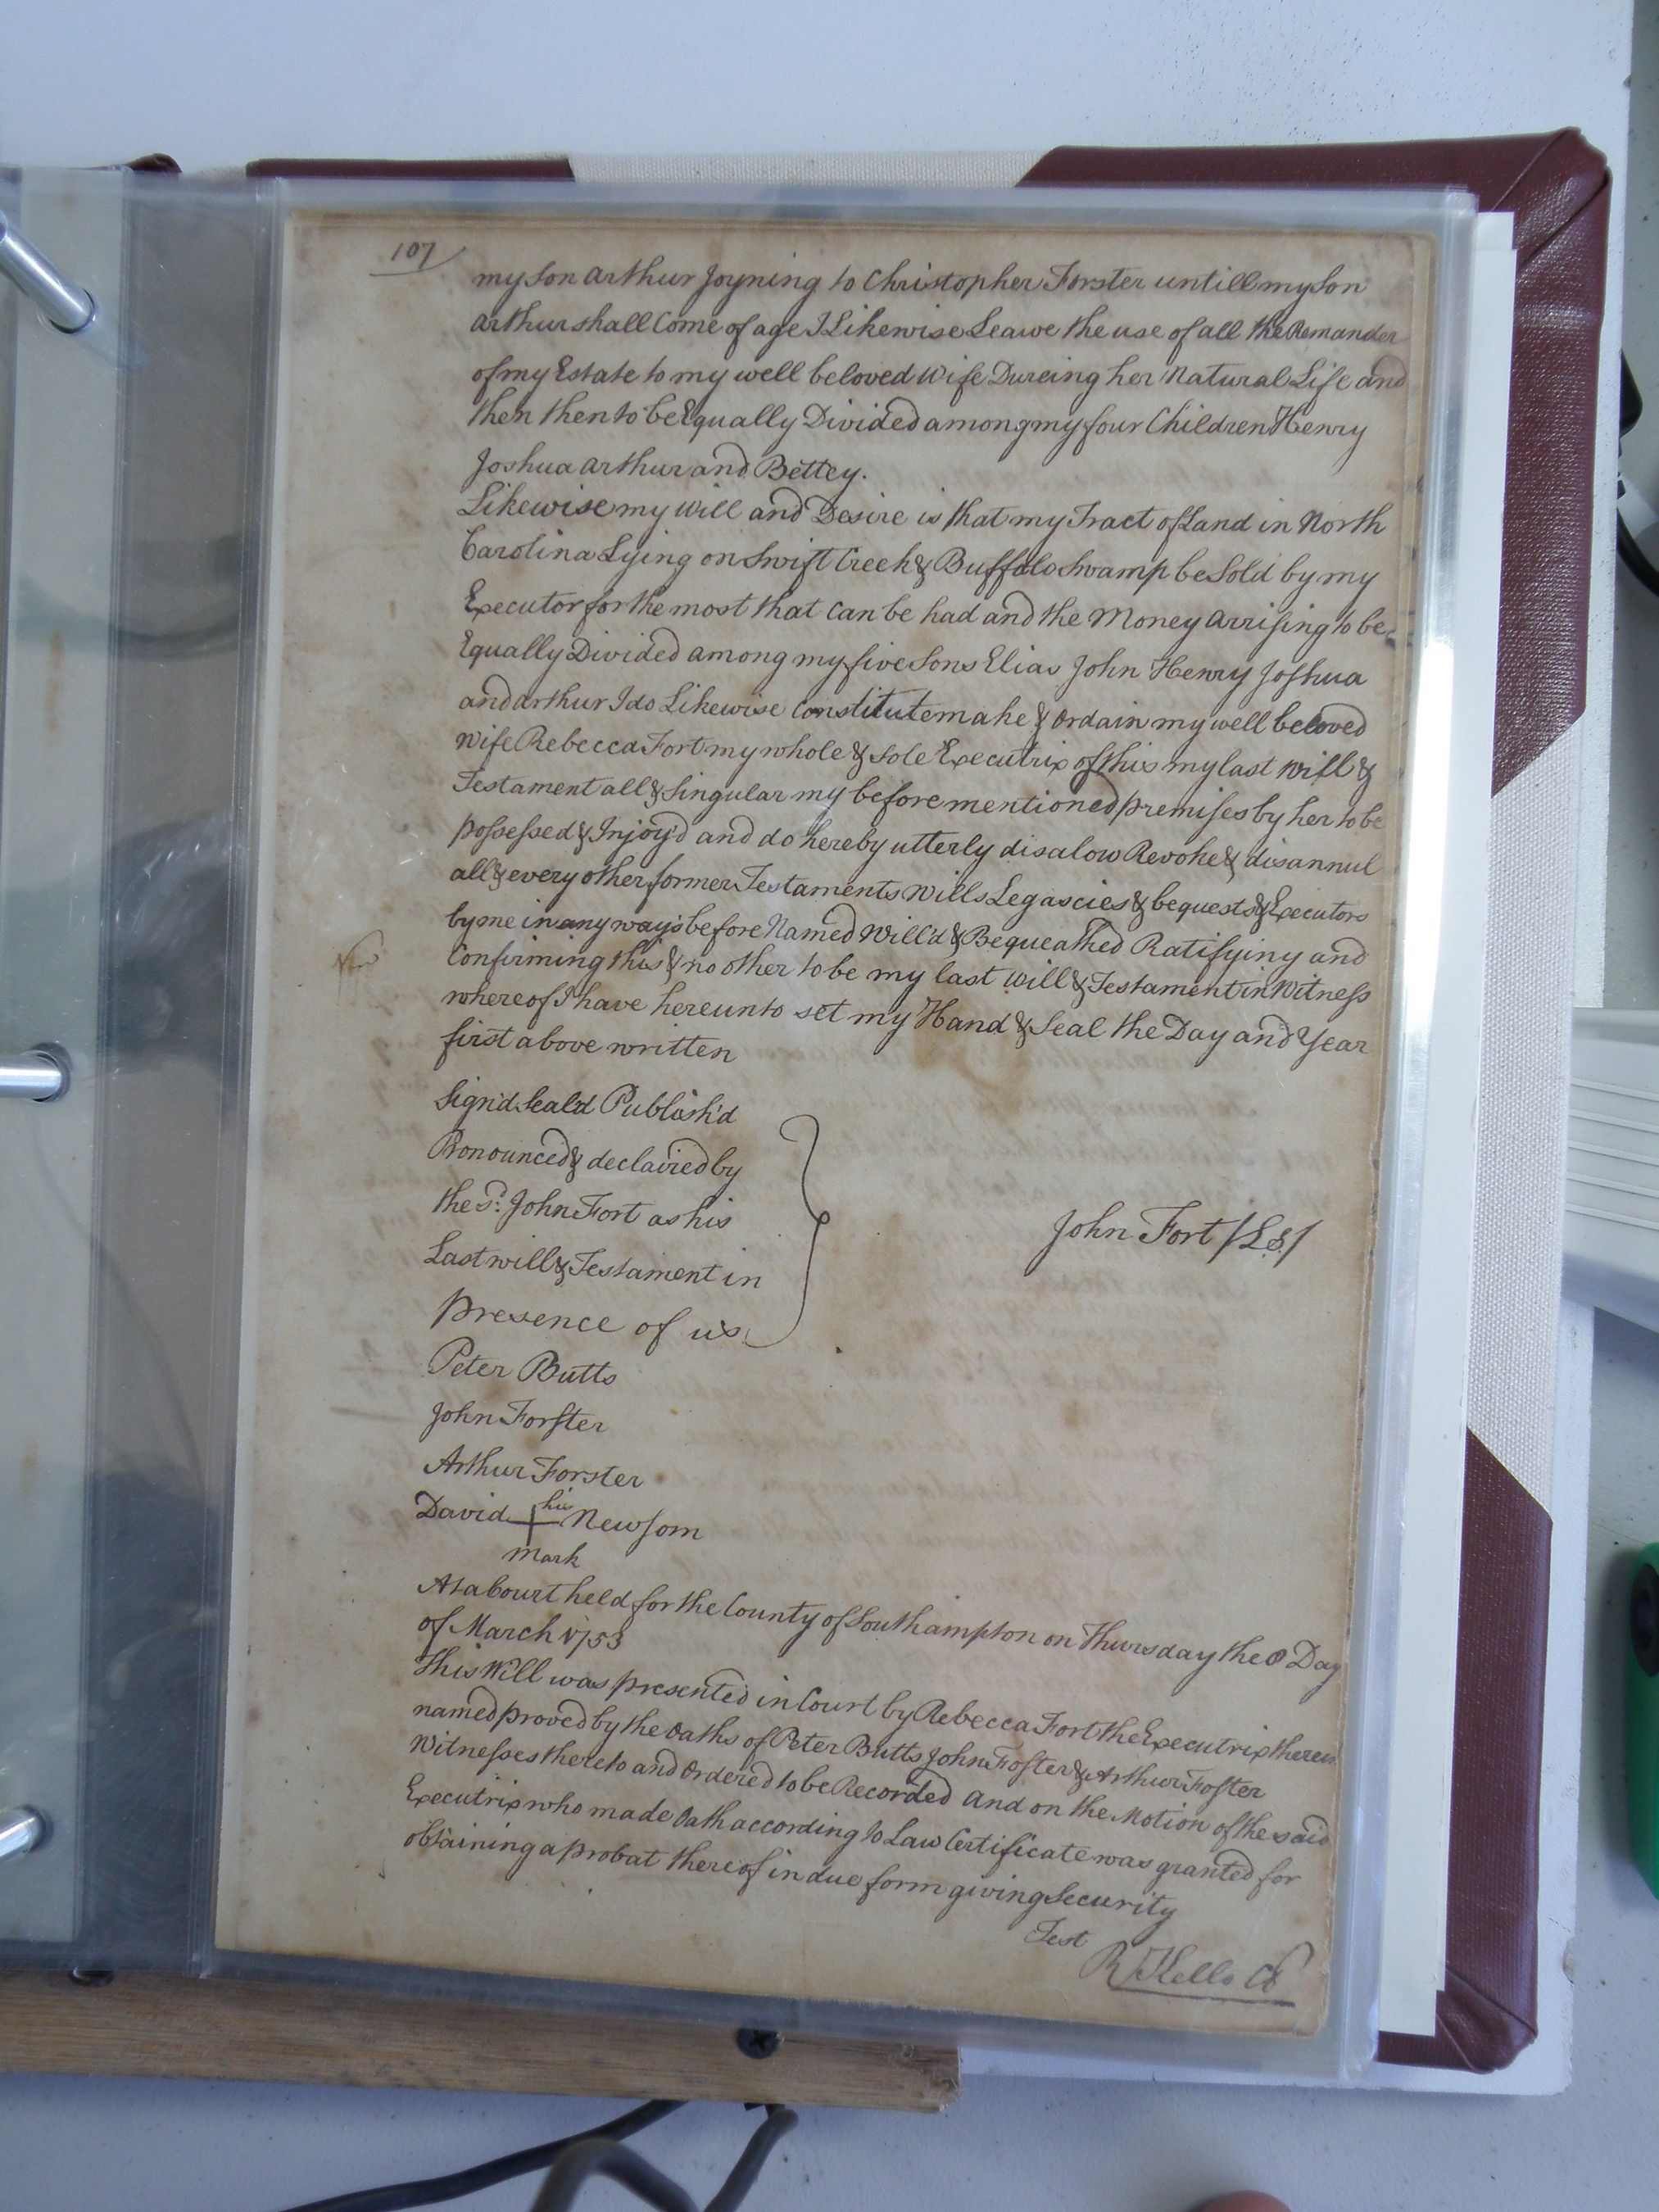 107
my Son arthur Joyning to Christopher Forster untill my Son
arthur shall Come of age I Likewise Leave the use of all the Remander
of my Estate to my well beloved wife Dureing her Natural Life and
then then to be Equally Divided among my four Children Henry
Joshua arthur and Bettey.
Likewise my will and Desire is that my Tract of Land in North
Carolina Lying on Swift Creek & Buffalo Swamp be Sold by my
Executor for the most that can be had and the Money arrising to be
Equally Divided among my five Sons Elias John Henry Joshua
and arthur I do Likewise Constitute make & Ordain my well beloved
wife Rebecca Fort my whole & sole Executrix of this my last will &
Testament all & Singular my before mentioned premises by her to be
possessed & Injoy'd and do hereby utterly disalow Revoke & disannul
all & every other former Testaments Wills Legascies & bequests & Executors
by me in any ways before Named Will'd & Bequeathed Ratifyiny and
Confirming this & no other to be my last Will & Testament in Witness
whereof I have hereunto set my Hand & Seal the Day and Year
first above written
Sign'd Seal'd Publish'd
Pronounced & declaired by
the sd. John Fort as his
Last will & Testament in
presence of us
John Fort /L.S/
Peter Butts
John Forster
Arthur Forster
his
David + Newsom
mark
At a Court held for the County of Southampton on Thursday the 8 Day
of March 1753
This Will was presented in Court by Rebecca Fort the Executrix therein
named proved by the Oaths of Peter Butts John Foster & Arthur Foster
Witnesses thereto and Ordered to be Recorded And on the Motion of the said
Executrix who made Oath according to Law Certificate was granted for
obtaining a probat thereof in due form giving Security
Test
R Kello